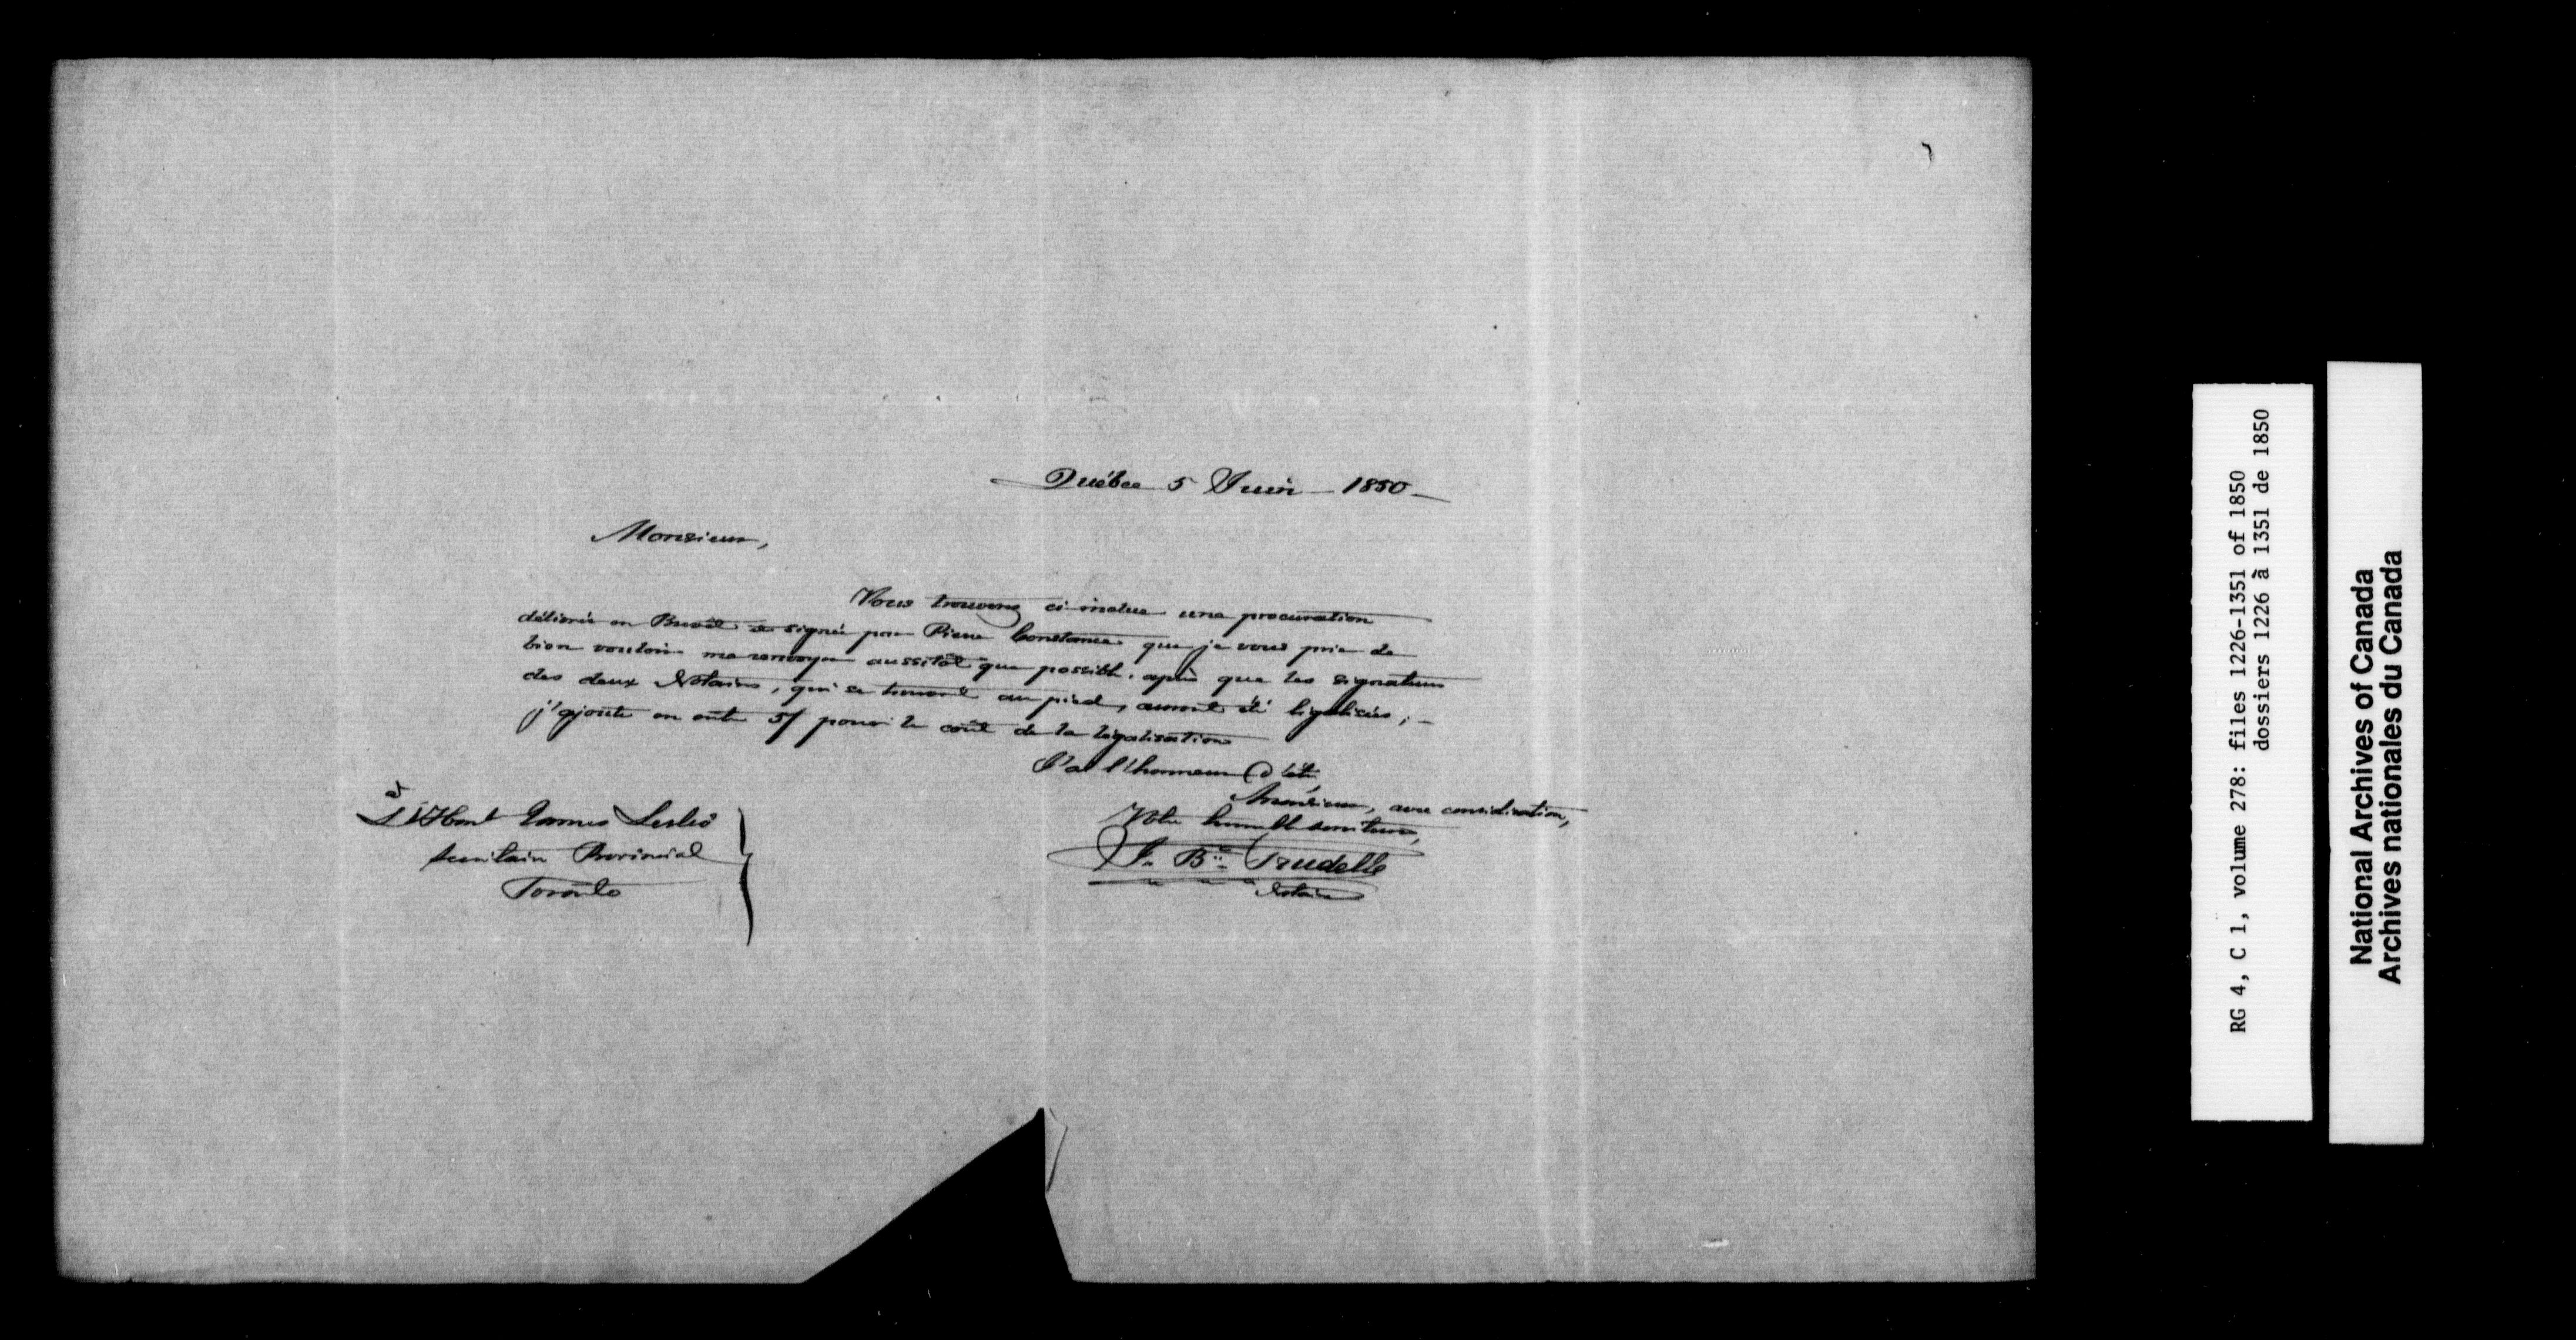 Québec 5 Juin - 1850 -
Monsieur,
Vous trouverez ci-inclue une procuration
délivrée en Brevêt et signée par Pierre Constance que je vous prie de
bien vouloir me renvoyer aussitôt que possible, après que les signatures
des deux Notaires, qui se trouvent au pied, auront été légalisées; -
j'ajoute en outre 5/ pour le coût de la légalisation
J'ai l'honneur d'être,
Monsieur, avec considération,
Votre humble serviteur,
J. Bte Trudelle
Notaire
à
L'Honl James Leslie
Secrétaire Provincial
Toronto
RG 4, C 1, volume 278: files 1226-1351 of 1850
dossiers 1226 à 1351 de 1850
National Archives of Canada
Archives nationales du Canada